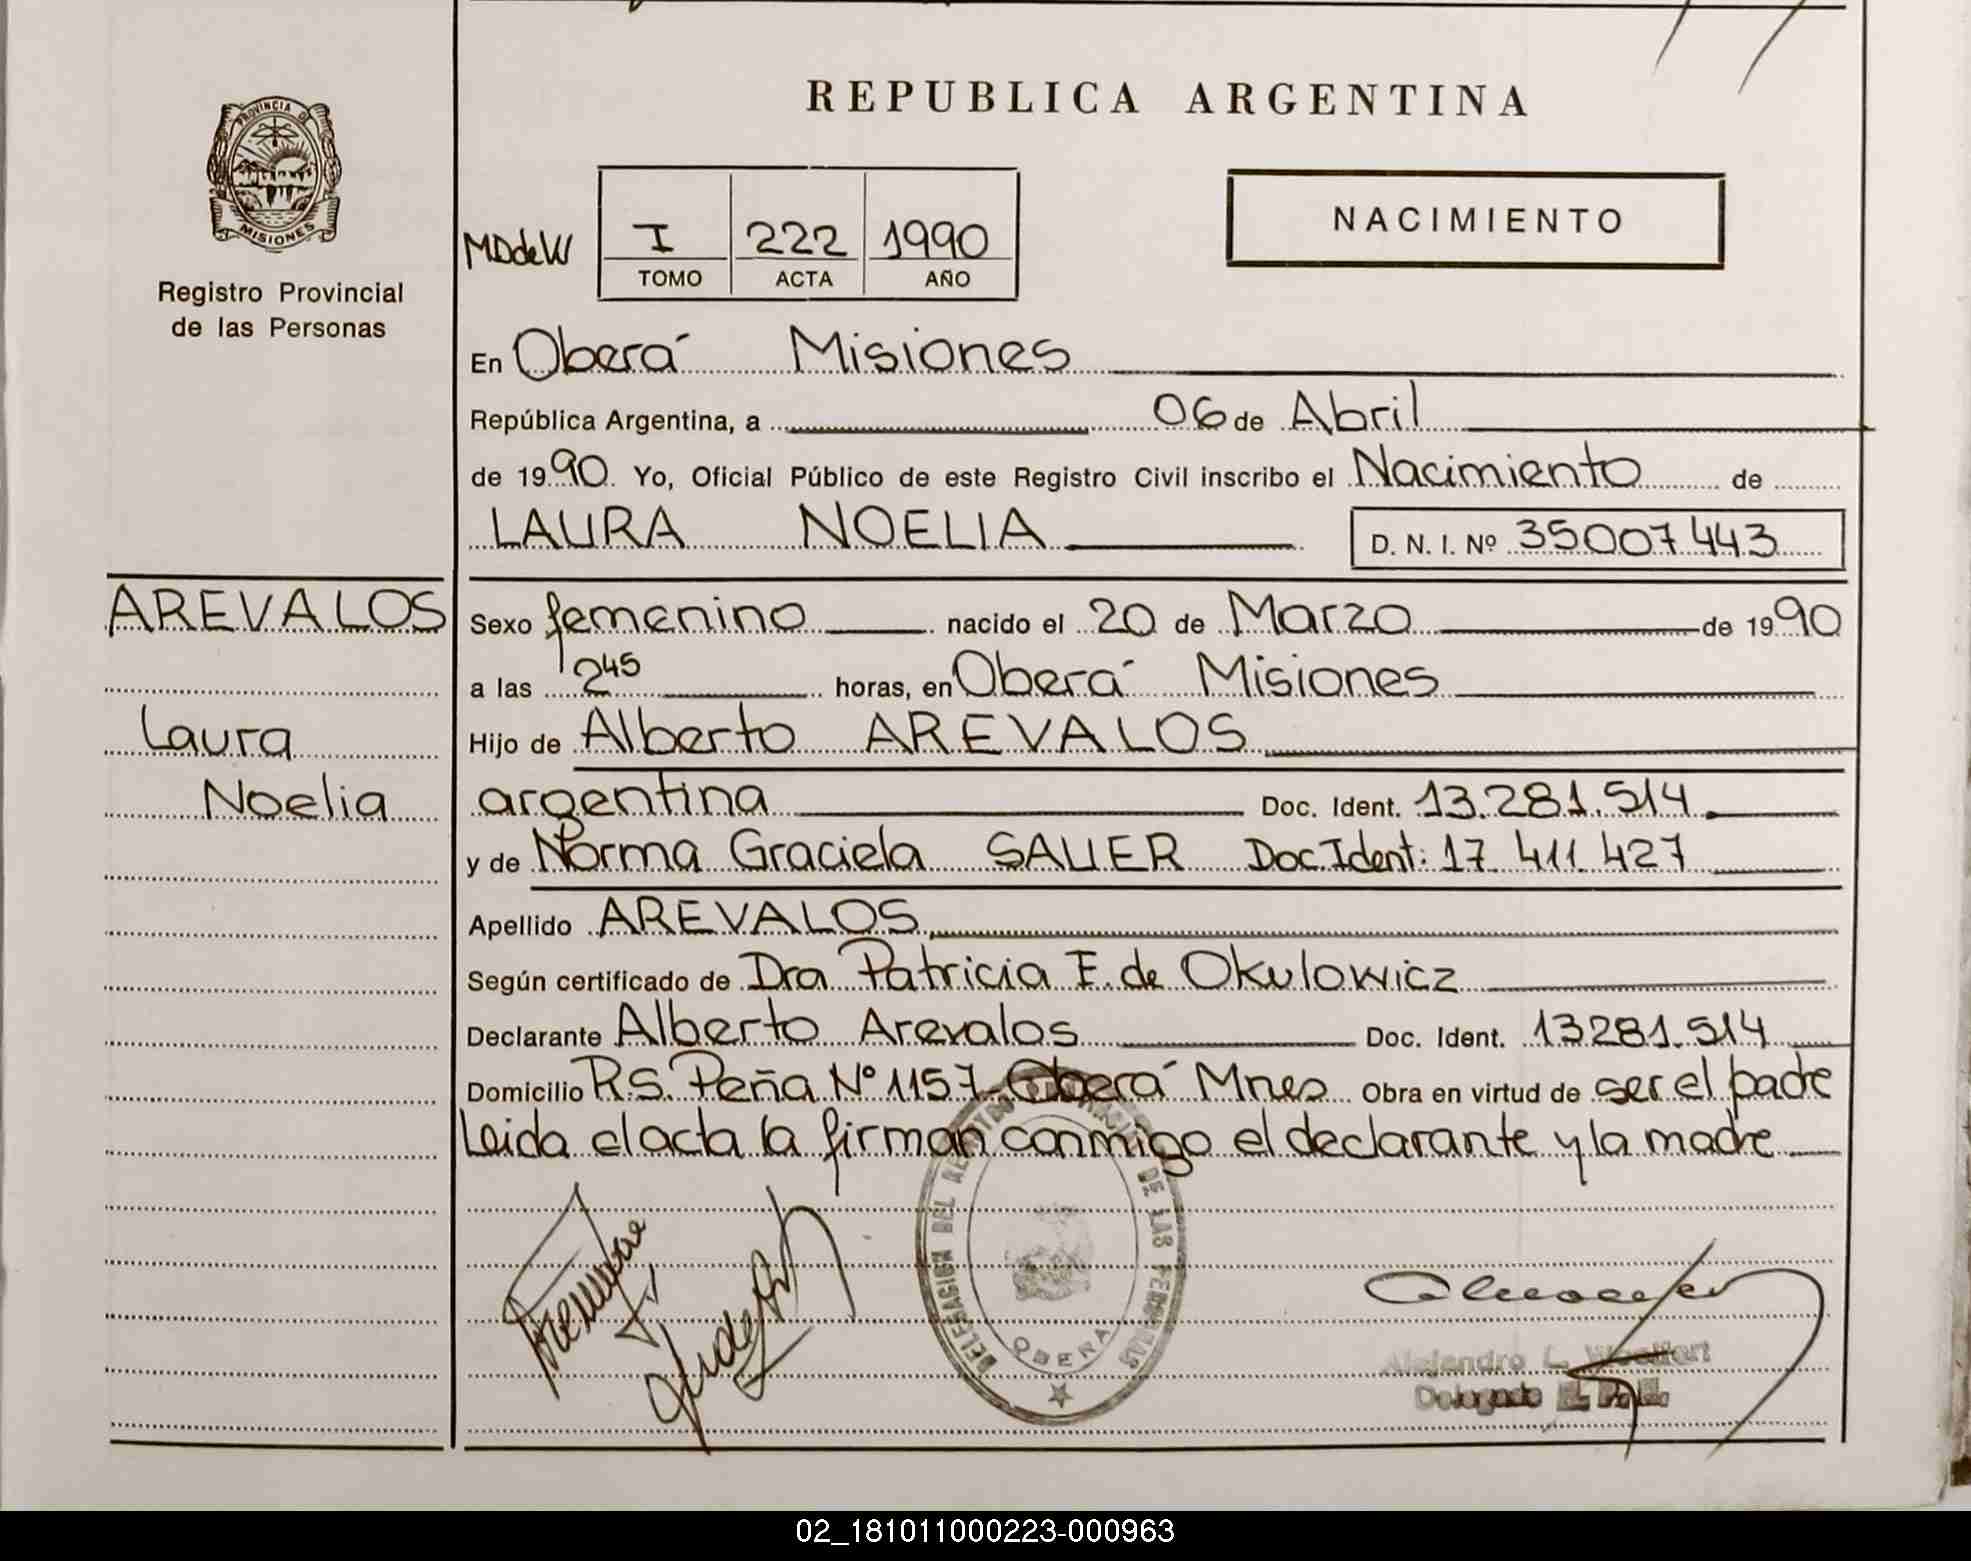 REPUBLICA ARGENTINA
PROVINCIA DE
MISIONES
Registro Provincial
de las Personas
MDdeW
I 222 1990
TOMO ACTA AÑO
NACIMIENTO
En Oberá Misiones
República Argentina, a 06 de Abril
de 1990. Yo, Oficial Público de este Registro Civil inscribo el Nacimiento de
LAURA NOELIA D. N. I. Nº 35007443
AREVALOS
Laura
Noelia
Sexo femenino nacido el 20 de Marzo de 1990
a las 2 45 horas, en Oberá Misiones
Hijo de Alberto AREVALOS
argentina Doc. Ident. 13.281.514
y de Norma Graciela SAUER Doc Ident: 17.411.427
Apellido AREVALOS
Según certificado de Dra Patricia F. de Okulowicz
Declarante Alberto Arevalos Doc. Ident. 13281.514
Domicilio R.S. Peña Nº 1157 Oberá Mnes Obra en virtud de ser el padre
Leida el acta la firman conmigo el declarante y la madre
DELEGACION DEL REGISTRO DE LAS PERSONAS
OBERA
Alejandro L.
Delegado
02_181011000223-000963